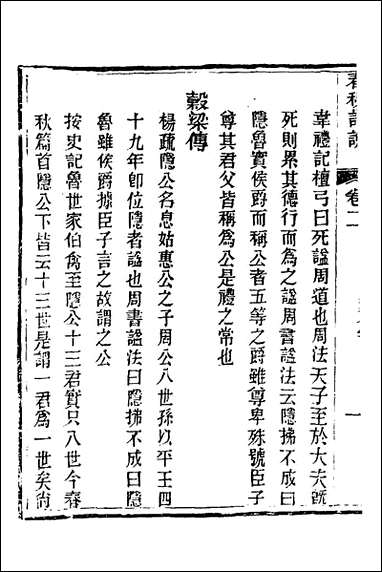 卷二
韋禮記檀弓曰死諡周道也周法天子至於大夫既
死則累其德行而爲之諡周書諡法云隱拂不成曰
隱魯實侯爵而稱公者五等之爵雖尊卑殊號臣子
尊其君父皆稱爲公是禮之常也
穀梁傳
楊疏隱公名息姑惠公之子周公八世孫以平王四
十九年卽位隱者諡也周書諡法曰隱拂不成曰隱
魯雖侯爵據臣子言之故謂之公
按史記魯世家伯禽至隱公十三君實只八世今春
秋篇首隱公下皆云十三世是謂一君爲一世矣尚